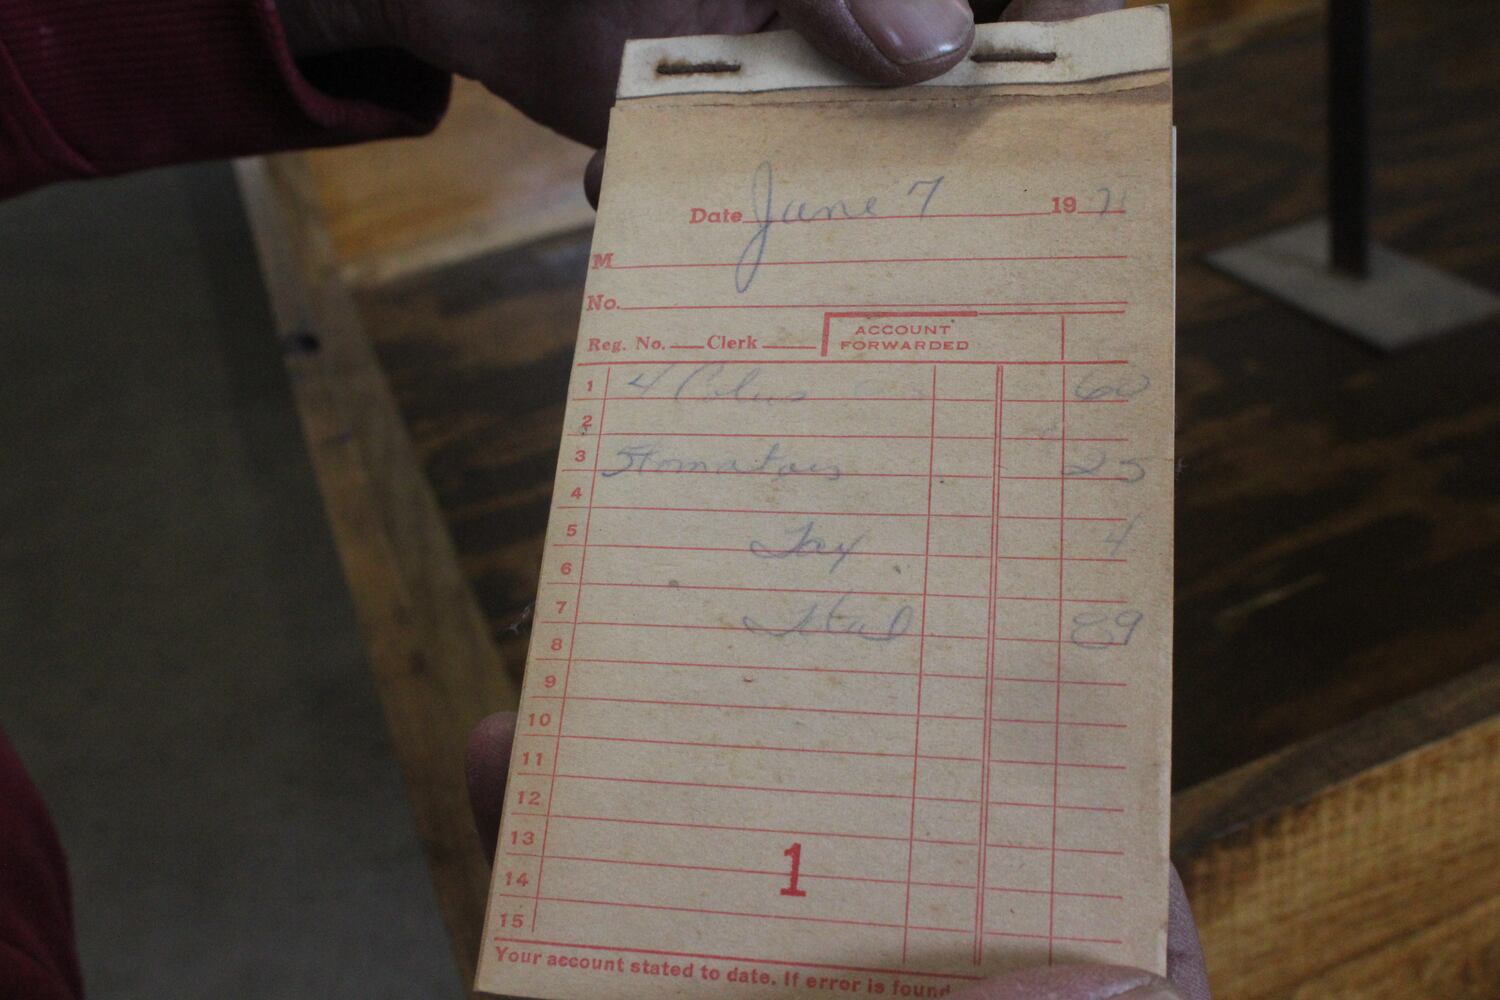 Date June 7 1971
M
No.
Reg. No. Clerk ACCOUNT FORWARDED
1 4 Colas 60
2
3 5 tomatoes 25
4
5 Tax 4
6
7 Total 89
8
9
10
11
12
13
1
14
15
Your account stated to date. If error is found